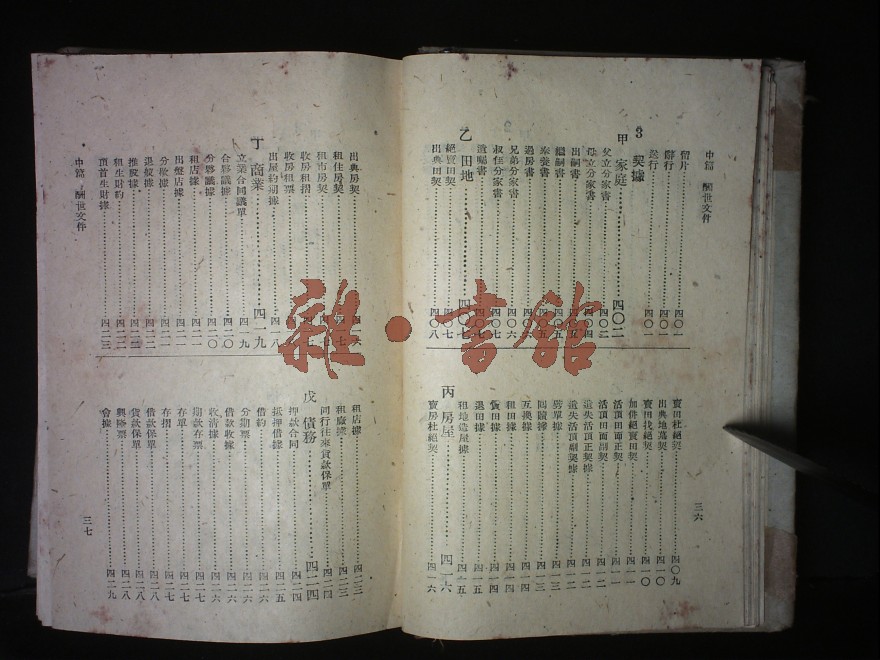 中篇 酬世文件
留片……四〇一
辭行……四〇一
送行……四〇一
3 契據
甲 家庭……四〇二
父立分家書……四〇二
母立分家書……四〇四
出嗣書……四〇五
繼嗣書
奉養書……四〇五
過房書
兄弟分家書……四〇六
叔侄分家書……四〇七
遺囑書……四〇七
乙 田地……四〇七
絕賣田契……四〇八
出典田契……四〇八
賣田杜絕契……四〇九
出典地蕩契……四一〇
賣田找絕契……四一〇
加併絕賣田契……四一一
活頂田面正契……四一一
活頂田面副契……四一二
遺失活頂正契據……四一二
遺失活頂副契據……四一三
勞單據……四一三
回贖據……四一三
互換據……四一四
租田據……四一四
賃田據……四一四
退田據……四一五
租地造屋據……四一五
丙 房屋……四一六
賣房杜絕契……四一六
三六
出典房契……四一六
租住房契……四一七
租市房契
收房租摺……四一七
收房租票
出屋約期據……四一八
丁 商業……四一九
立業合同議單……四一九
合夥議據……四二〇
分夥議據……四二〇
租店據……四二一
出盤店據……四二一
分撥據……四二二
退股據……四二二
推股據
租生財約……四二二
頂首生財據……四二三
中篇 酬世文件
租店據……四二三
租廠據……四二三
同行往來貨款保單……四二四
戊 債務……四二四
押款合同……四二四
抵押借據……四二五
借約……四二六
分期票……四二六
借款收據……四二六
收清據……四二六
期款存票……四二七
存單……四二七
存摺……四二七
借款保單……四二八
貨款保單……四二八
興隆票……四二八
會據……四二九
三七
雜·書館